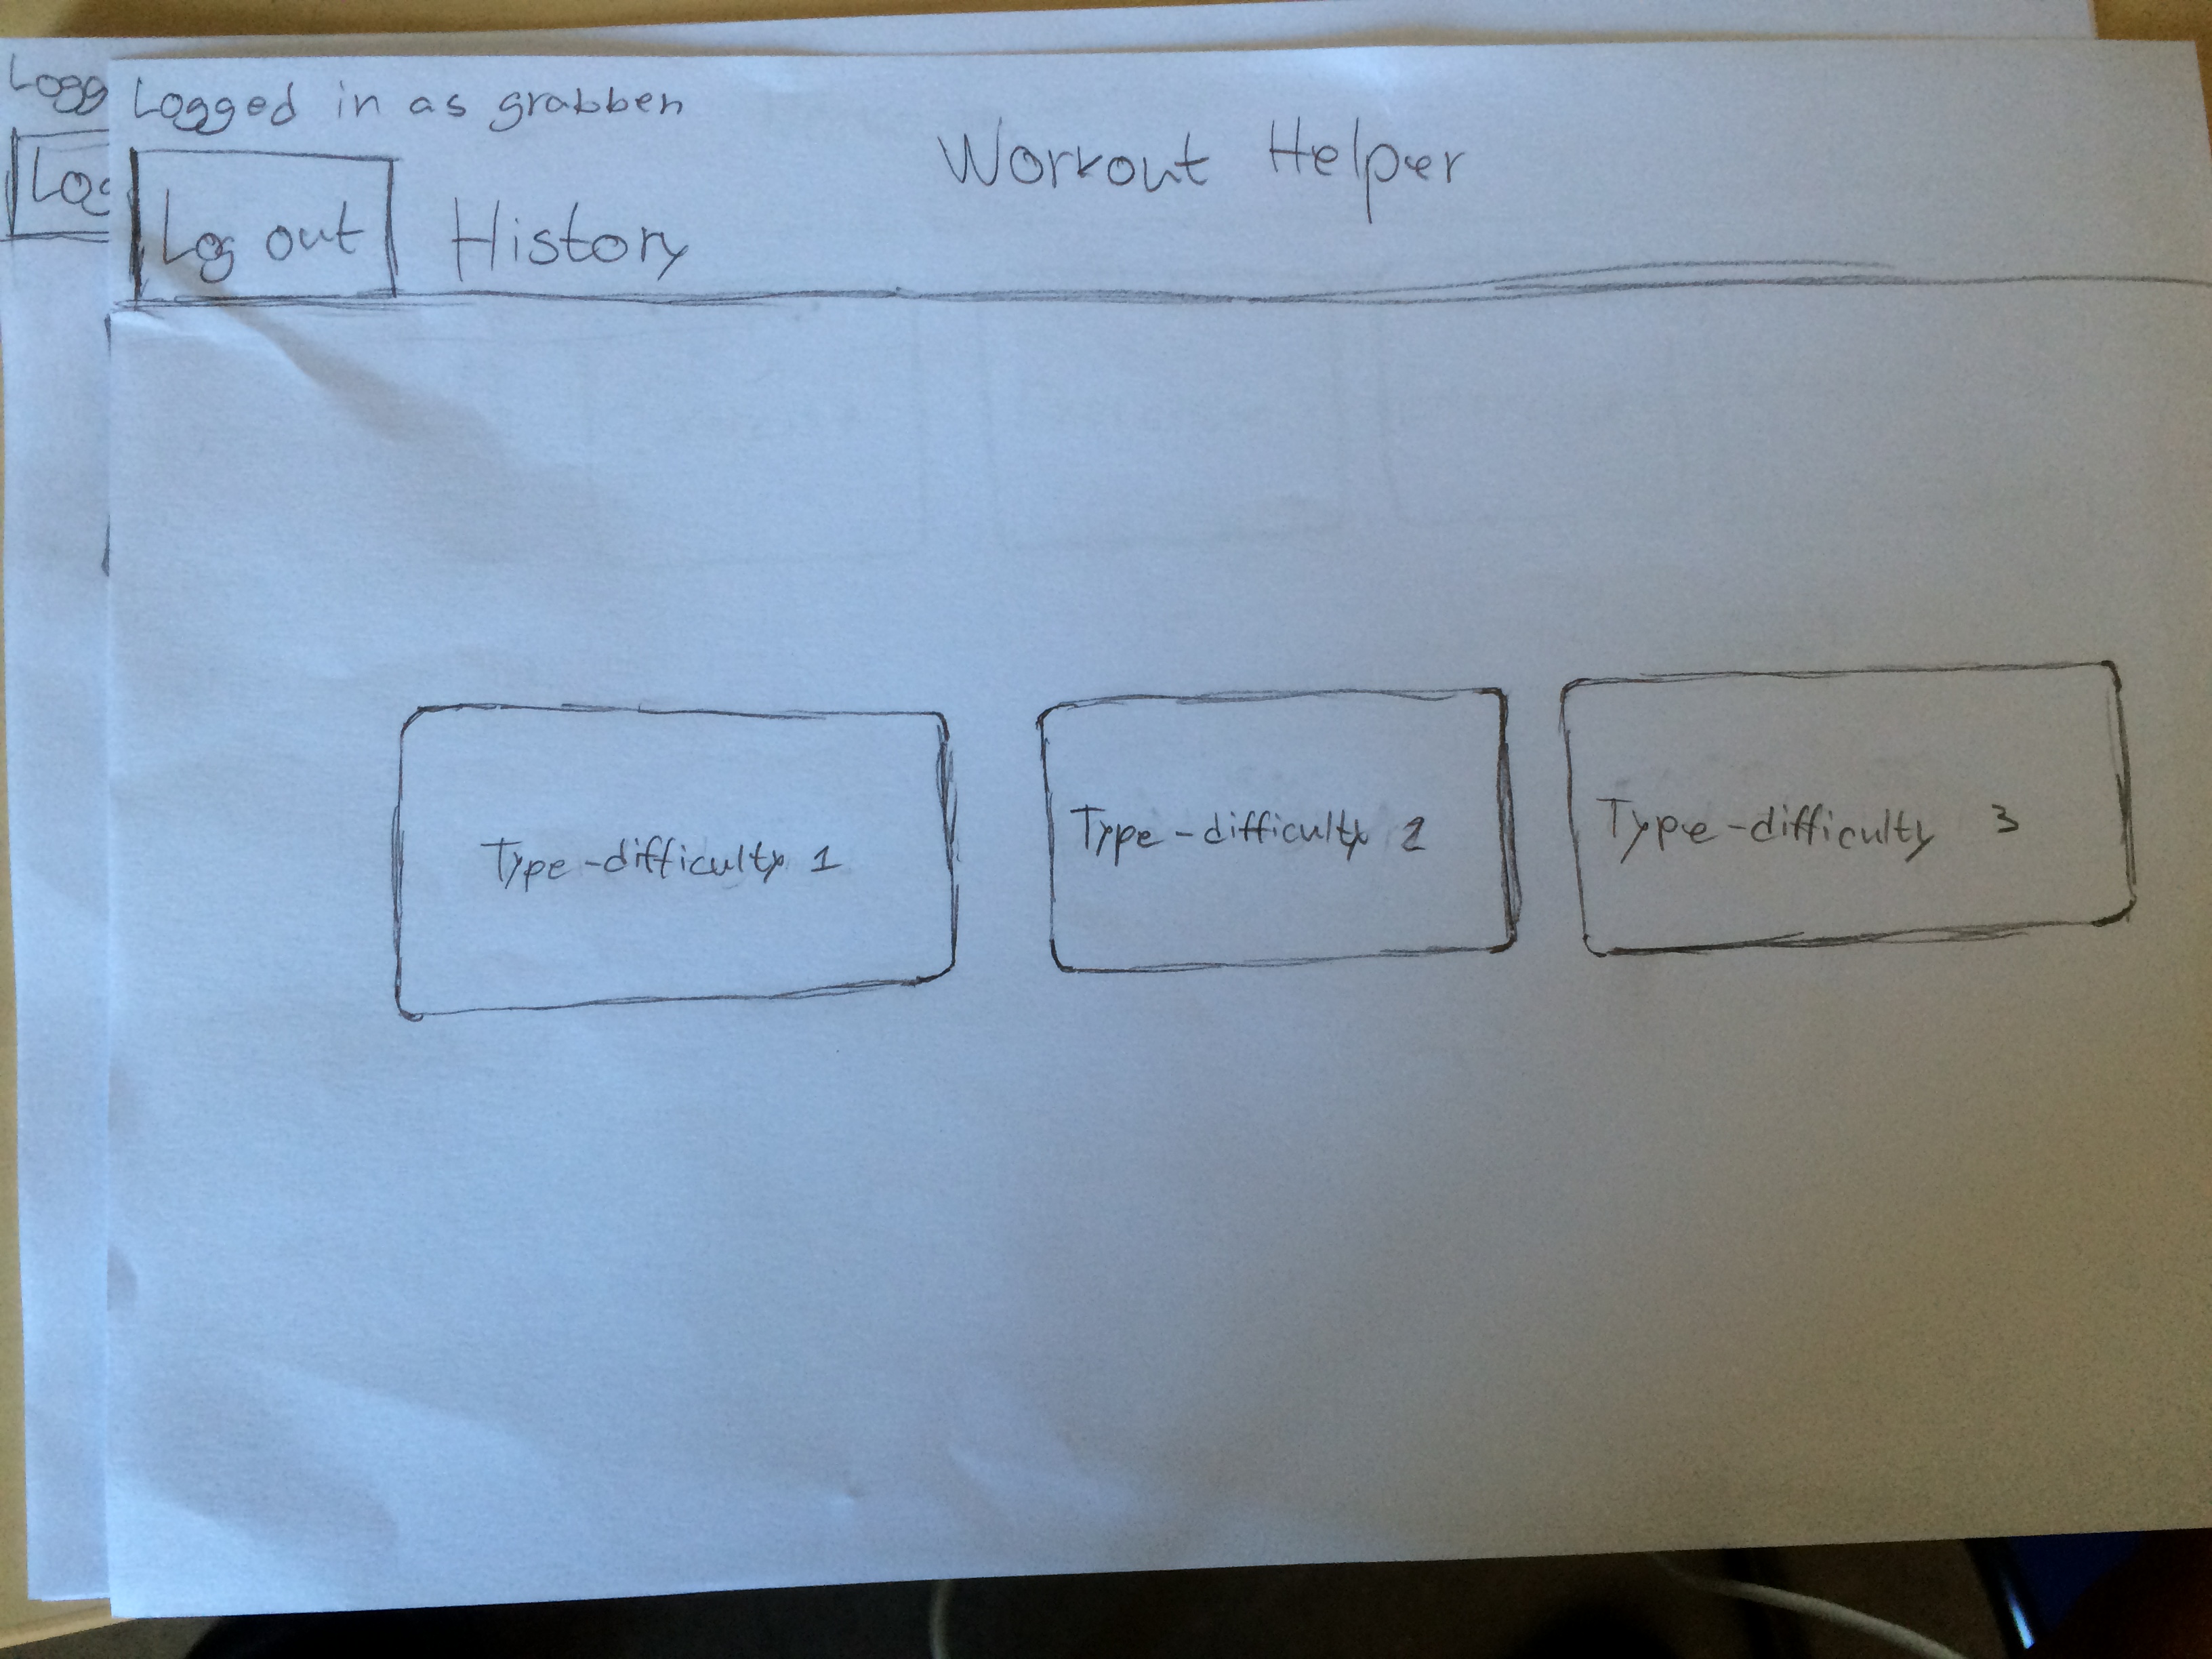 Logg
Logged in as grabben
Workout Helper
Log out
History
Type-difficulty 1
Type-difficulty 2
Type-difficulty 3